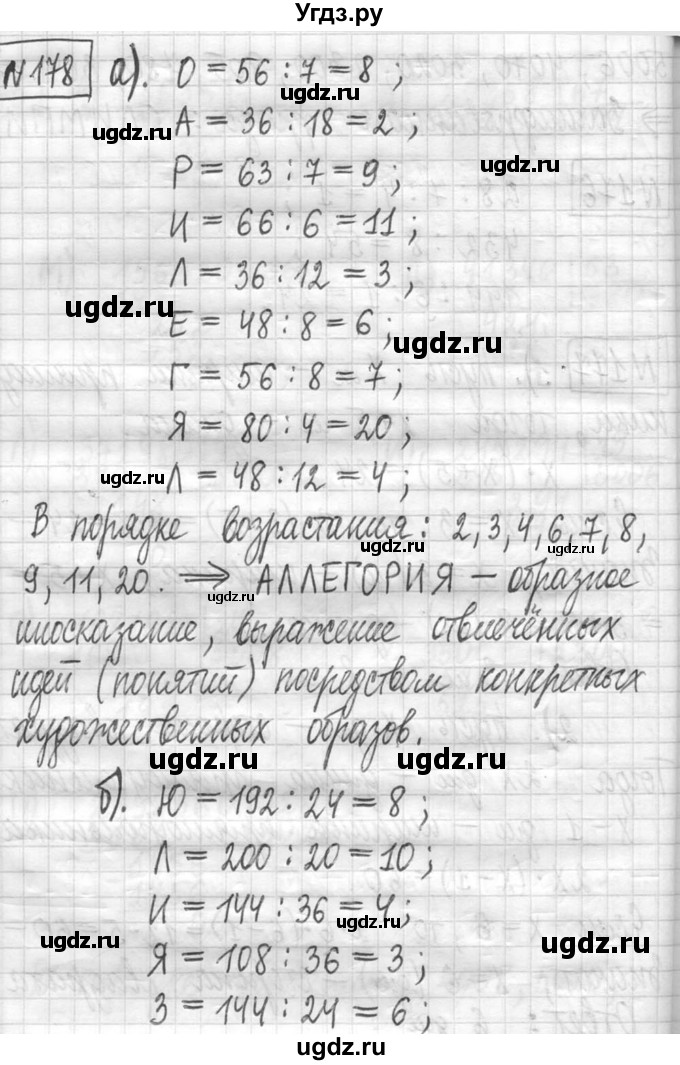 Угдз.ру
№178 а). О = 56 : 7 = 8 ;
ugdz.ru
А = 36 : 18 = 2 ;
ugdz.ru
Р = 63 : 7 = 9 ;
ugdz.ru
И = 66 : 6 = 11 ;
Л = 36 : 12 = 3 ;
ugdz.ru
Е = 48 : 8 = 6 ;
ugdz.ru
Г = 56 : 8 = 7 ;
Я = 80 : 4 = 20 ;
ugdz.ru Л = 48 : 12 = 4 ;
В порядке возрастания: 2, 3, 4, 6, 7, 8,
ugdz.ru ugdz.ru
9, 11, 20. ⇒ АЛЛЕГОРИЯ – образное
ugdz.ru
иносказание, выражение отвлечённых
идей (понятий) посредством конкретных
художественных образов.
ugdz.ru ugdz.ru
б). Ю = 192 : 24 = 8 ;
Л = 200 : 20 = 10 ;
И = 144 : 36 = 4 ;
ugdz.ru
Я = 108 : 36 = 3 ;
ugdz.ru ugdz.ru
З = 144 : 24 = 6 ;
ugdz.ru